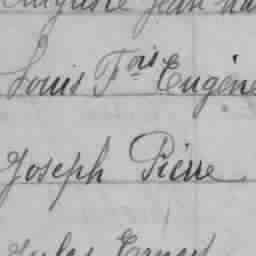 Auguste Jean
Louis Fois Eugène
Joseph Pierre
Jules Ernest